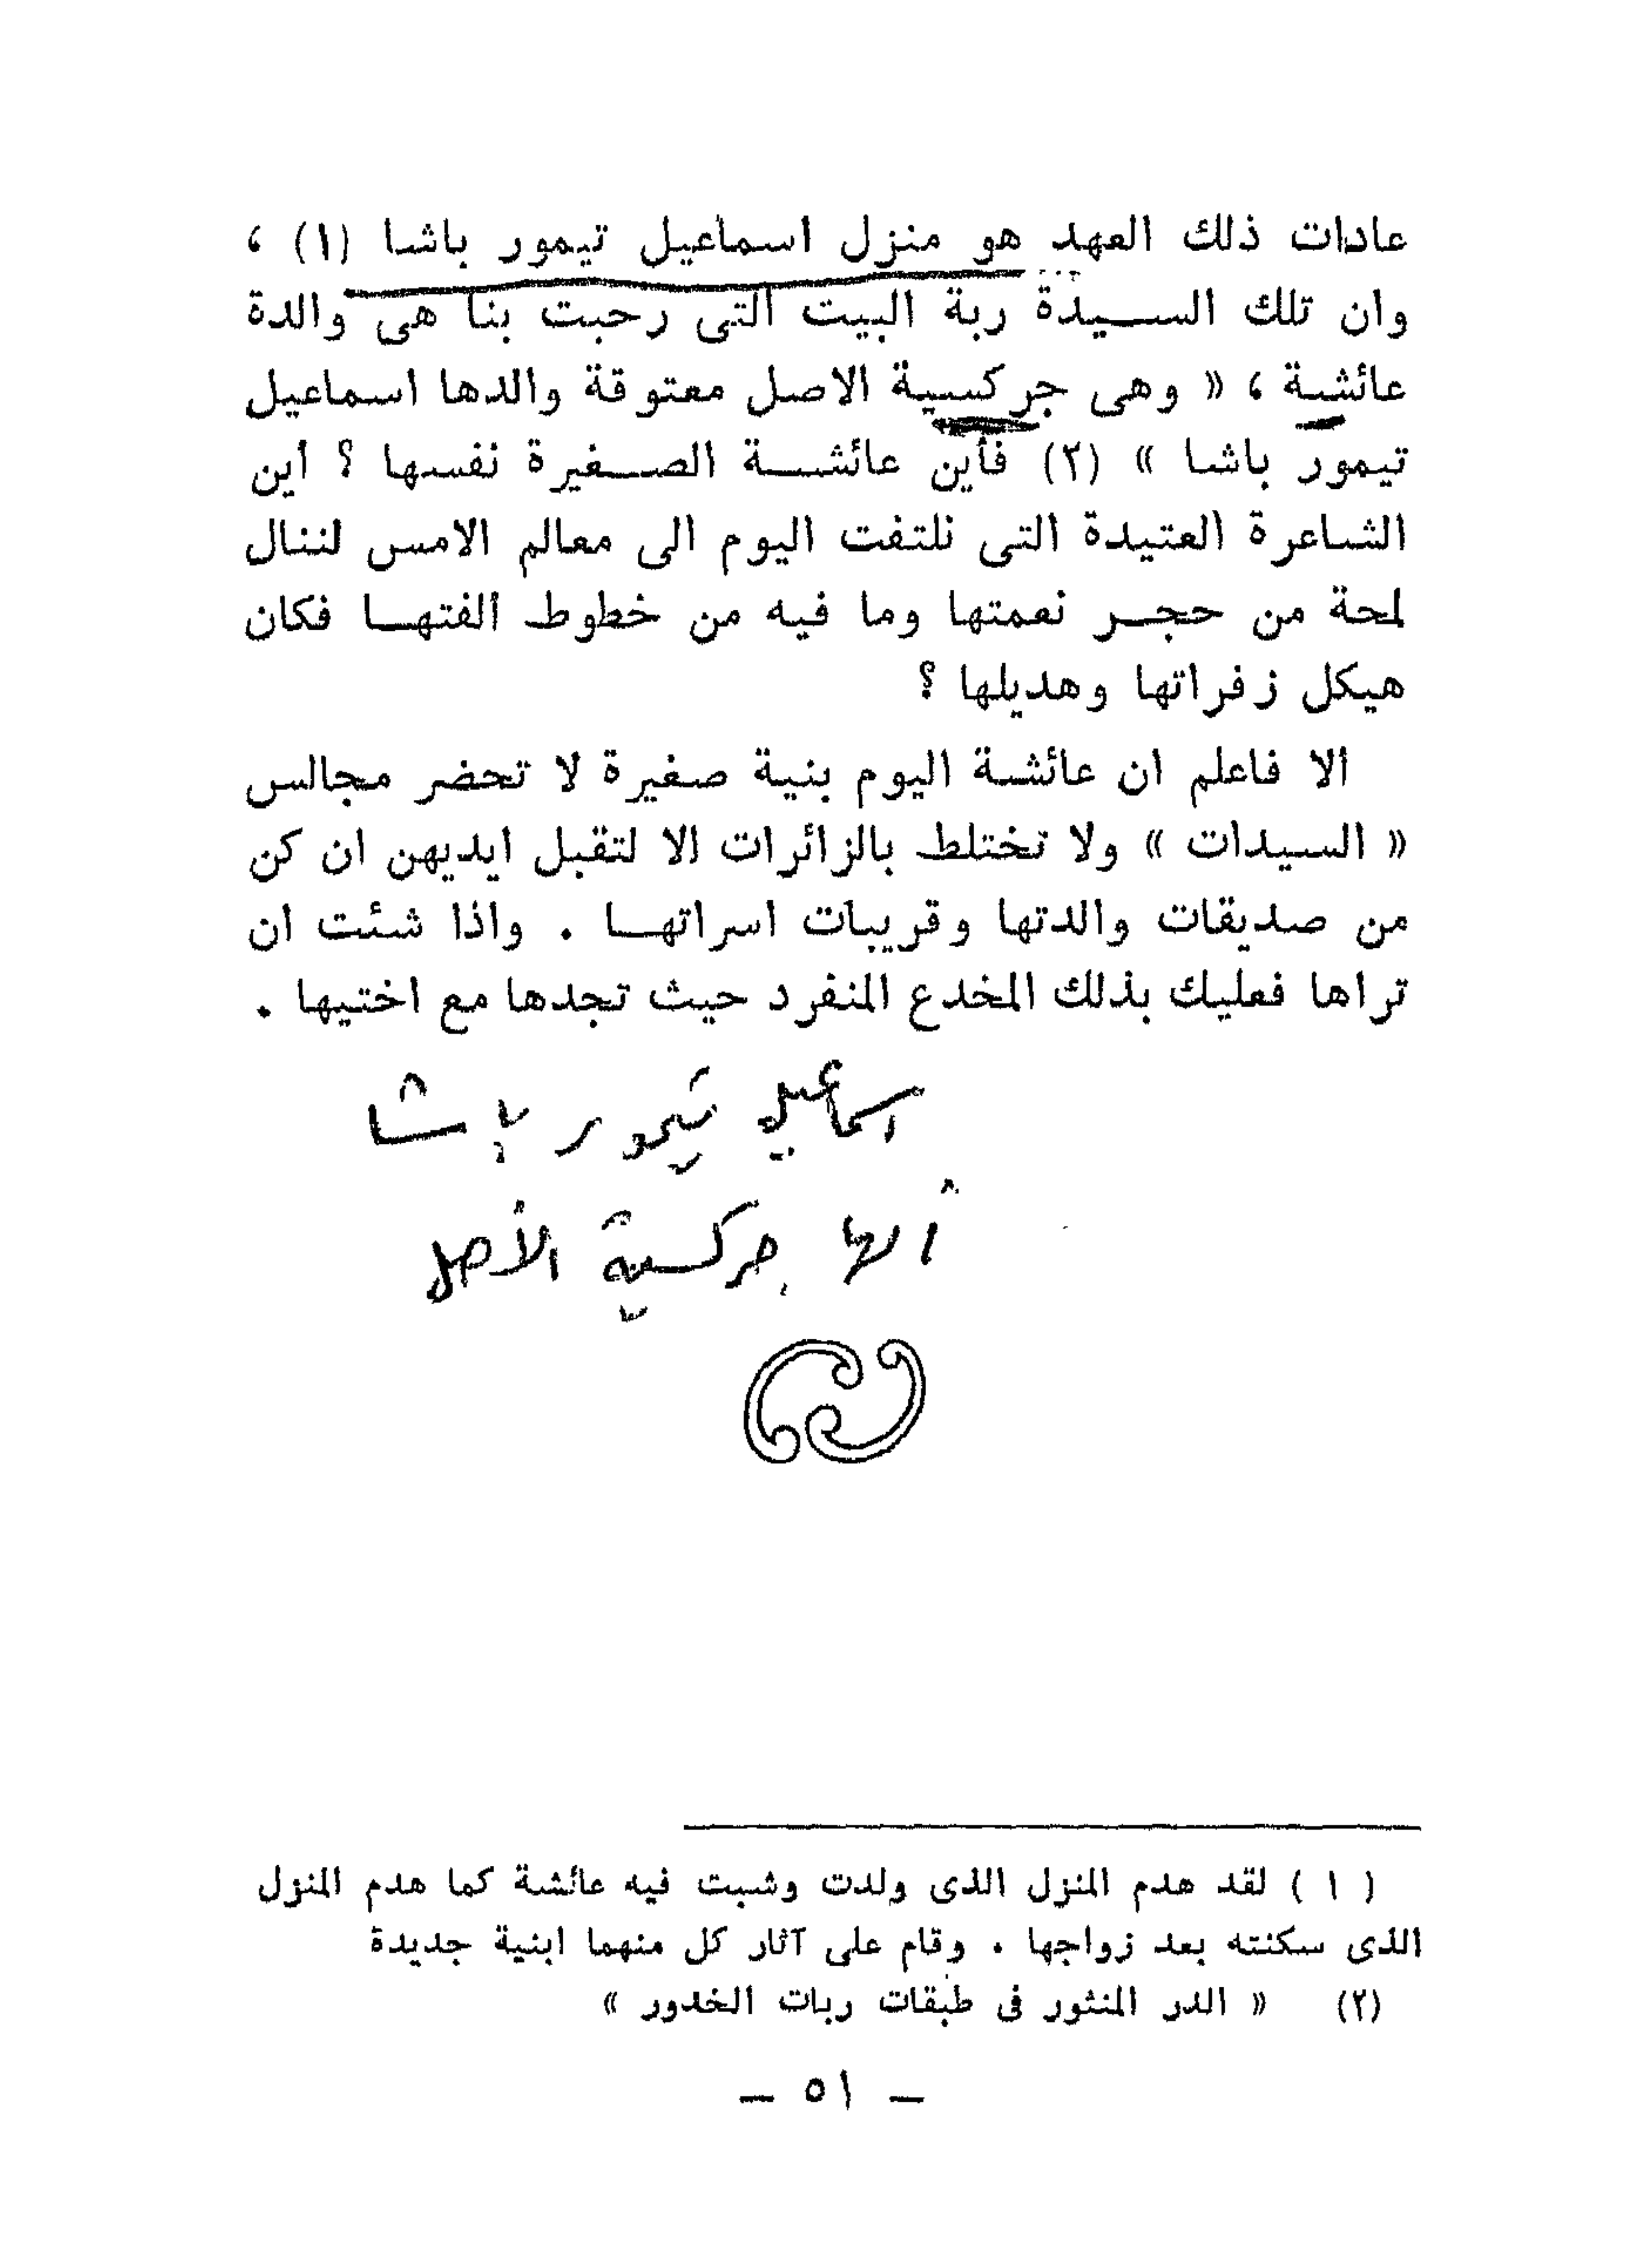 عادات ذلك العهد هو منزل اسماعيل تيمور باشا (١) ،
وان تلك السيدة ربة البيت التى رحبت بنا هى والدة
عائشة ، « وهى جركسية الاصل معتوقة والدها اسماعيل
تيمور باشا » (٢) فأين عائشة الصغيرة نفسها ؟ أين
الشاعرة العتيدة التى نلتفت اليوم الى معالم الامس لننال
لمحة من حجر نعمتها وما فيه من خطوط ألفتها فكان
هيكل زفراتها وهديلها ؟
ألا فاعلم ان عائشة اليوم بنية صغيرة لا تحضر مجالس
« السيدات » ولا تختلط بالزائرات الا لتقبل ايديهن ان كن
من صديقات والدتها وقريبات اسراتها . واذا شئت ان
تراها فعليك بذلك المخدع المنفرد حيث تجدها مع اختيها .
اسماعيل تيمور باشا
أمها جركسية الأصل
( ١ ) لقد هدم المنزل الذى ولدت وشبت فيه عائشة كما هدم المنزل
الذى سكنته بعد زواجها . وقام على آثار كل منهما ابنية جديدة
(٢) « الدر المنثور فى طبقات ربات الخدور »
— ٥١ —